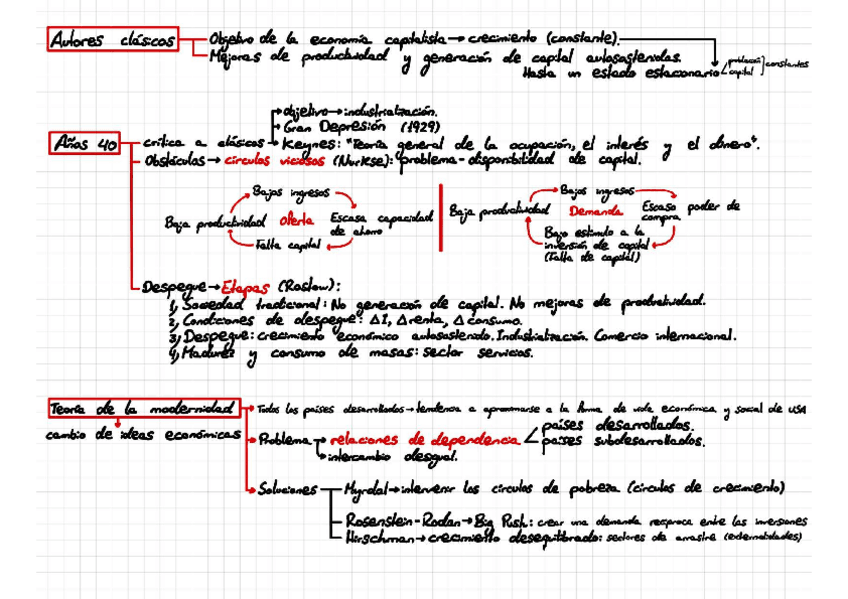 Autores clásicos
Objetivo de la economía capitalista → crecimiento (constante).
Mejoras de productividad y generación de capital autosostenidas.
Hasta un estado estacionario
población
capital
constantes
Años 40
crítica a clásicos
objetivo → industrialización.
Gran Depresión (1929)
Keynes: "Teoría general de la ocupación, el interés y el dinero".
Obstáculos → círculos viciosos (Nurkse): problema - disponibilidad de capital.
Bajos ingresos
Baja productividad Oferta Escasa capacidad
de ahorro
Falta capital
Bajos ingresos
Baja productividad Demanda Escaso poder de
compra
Bajo estímulo a la
inversión de capital
(Falta de capital)
Despegue → Etapas (Rostow):
1) Sociedad tradicional: No generación de capital. No mejoras de productividad.
2) Condiciones de despegue: ΔI, Δrenta, Δconsumo.
3) Despegue: crecimiento económico autosostenido. Industrialización. Comercio internacional.
4) Madurez y consumo de masas: sector servicios.
Teoría de la modernidad
cambio de ideas económicas
Todos los países desarrollados → tendencia a aproximarse a la forma de vida económica y social de USA
Problema
relaciones de dependencia
países desarrollados.
países subdesarrollados.
intercambio desigual.
Soluciones
Myrdal → intervenir los círculos de pobreza (círculos de crecimiento)
Rosenstein-Rodan → Big Push: crear una demanda recíproca entre las inversiones
Hirschman → crecimiento desequilibrado: sectores de arrastre (externalidades)